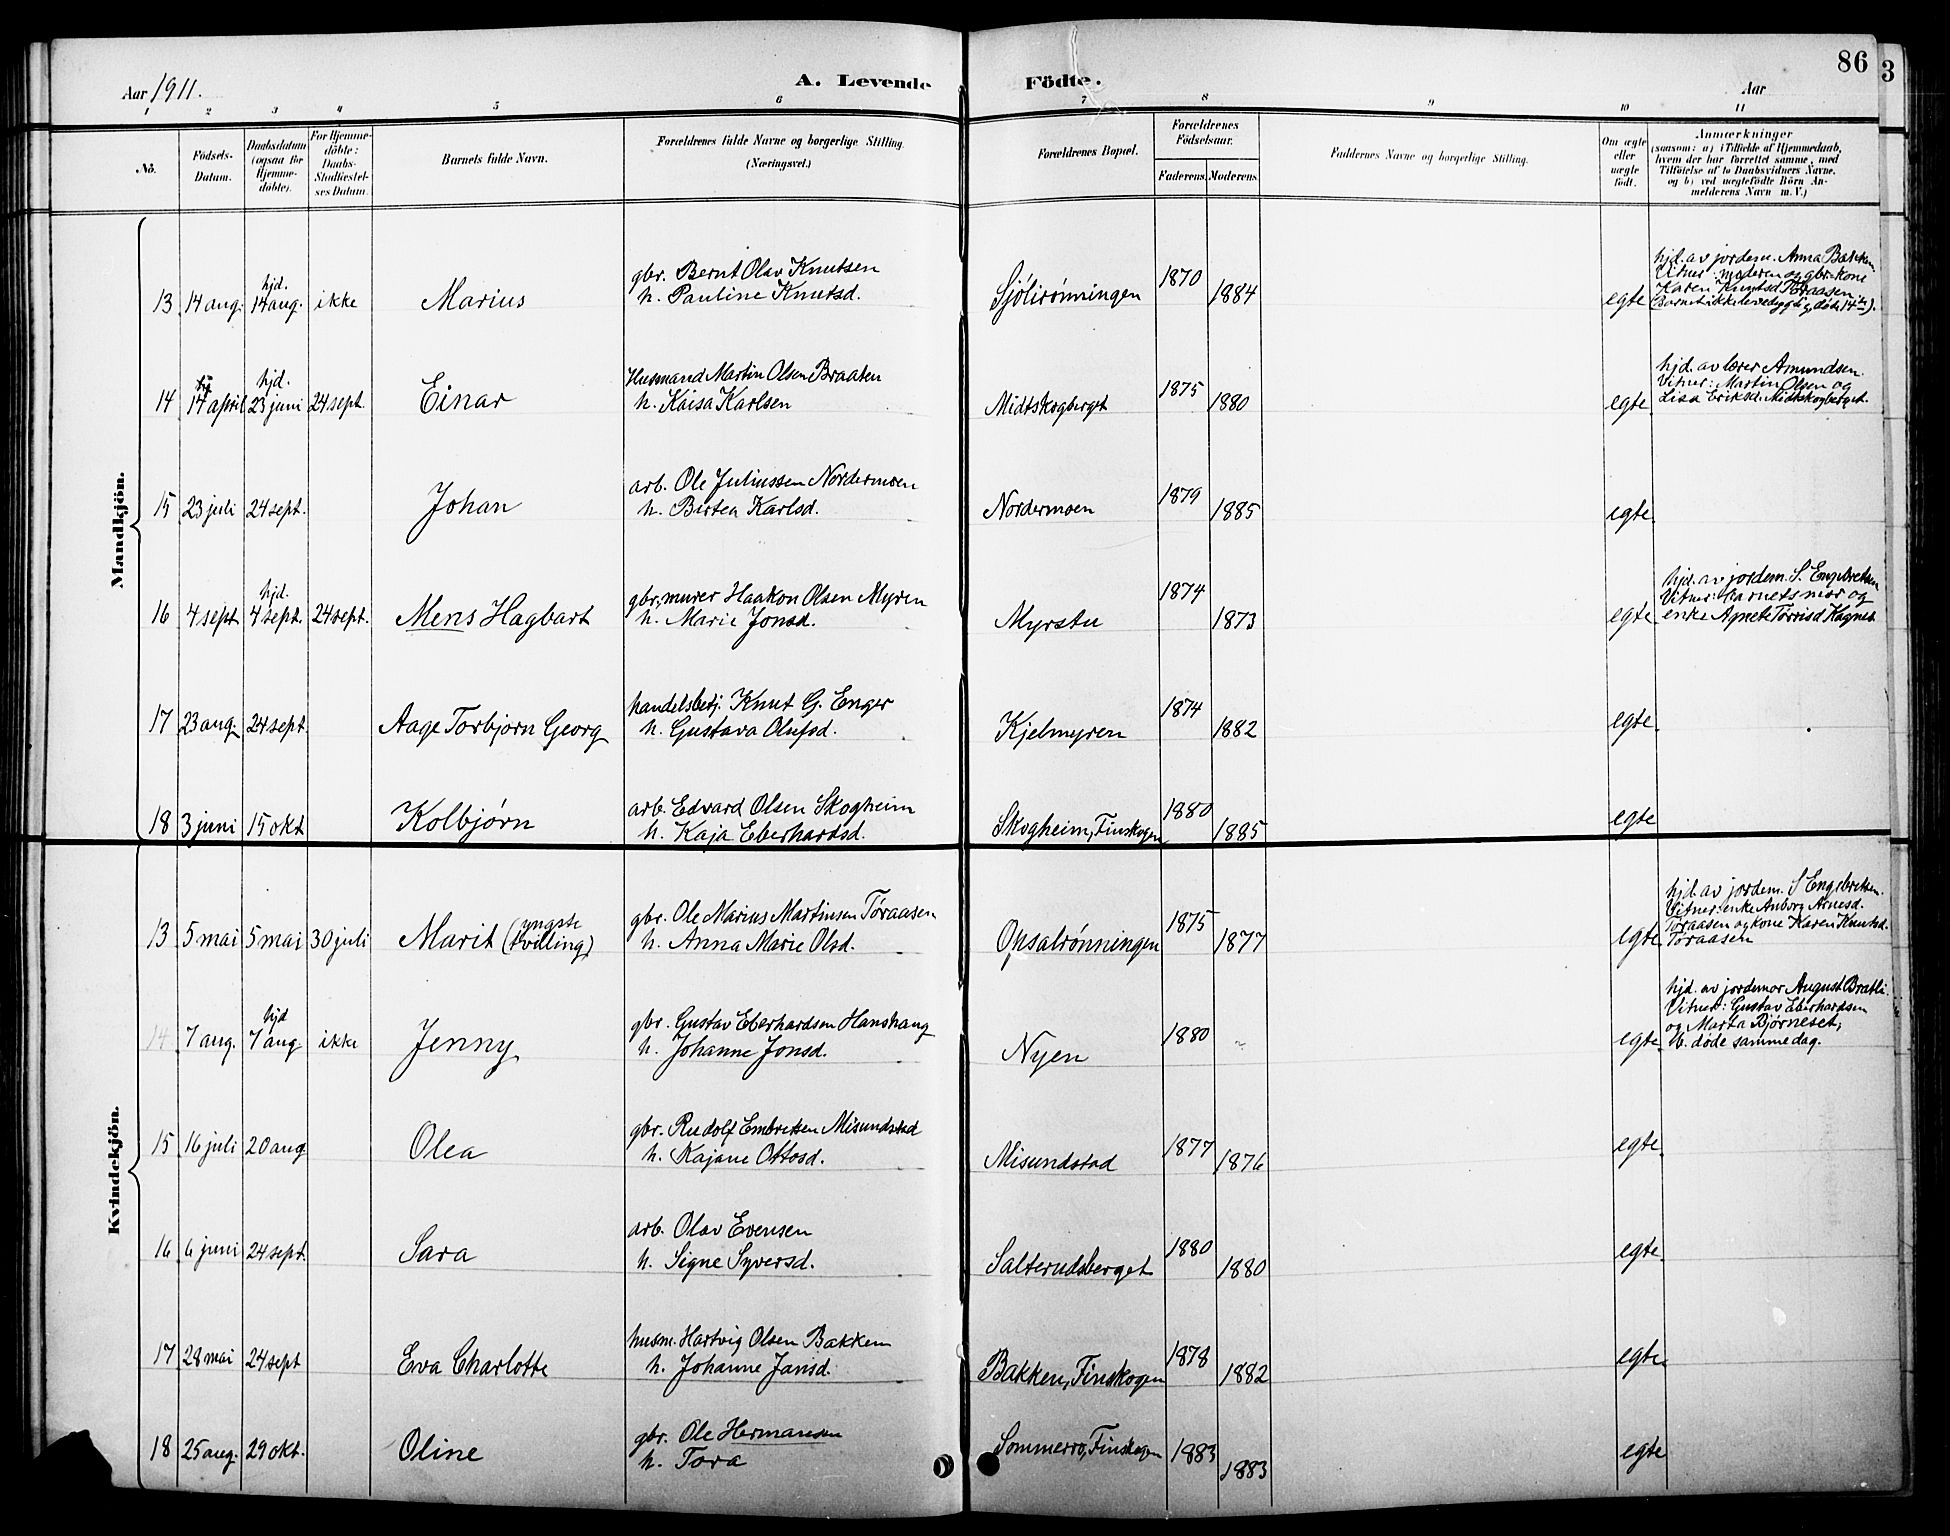 86
3
Aar 1911.
A. Levende Födte.
Aar
1 2 3 4 5 6 7 8 9 10 11
No.
Födsels-Datum.
Daabsdatum (ogsaa for Hjemme-döbte).
For Hjemme-döbte: Daabs-Stadfæstel-ses Datum.
Barnets fulde Navn.
Forældrenes fulde Navne og borgerlige Stilling.
(Næringsvei.)
Forældrenes Bopæl.
Forældrenes Födselsaar.
Faderens. Moderens.
Faddernes Navne og borgerlige Stilling.
Om ægte eller uægte født.
Anmærkninger
(saasom: a) i Tilfælde af Hjemmedaab,
hvem der har forrettet samme, med
Tilföielse af to Daabsvidners Navne,
og b) ved uægtefödte Börn An-
melderens Navn m. V.)
Mandkjön.
13 14 aug. hjd. 14 aug. ikke Marius
gbr. Bernt Olav Knutsen
h. Pauline Knutsd.
Sjölirönningen 1870 1884 egte
hjd. av jordem. Anna Bakken
Vitner: moderen og gbr.kone
Karen Knutsd. Töraasen
14 14 april hjd. 23 juni 24 sept. Einar
Husmand Martin Olsen Braaten
h. Kaisa Karlsen
Midtskogberget 1875 1880 egte
hjd. av lærer Amundsen.
Vitner: Martin Olsen og
Lisa Eriksd. Midtskogberget.
15 23 juli 24 sept. Johan
arb. Ole Juliussen Nordermoen
h. Birtea Karlsd.
Nordermoen 1879 1885 egte
16 4 sept hjd. 4 sept. 24 sept. Mens Hagbart
gbr., murer Haakon Olsen Myren
h. Marie Jonsd.
Myrstu 1874 1873 egte
hjd. av jordem. S. Engebretsen
Vitner: barnets mor og
enke Agnete Törrisd. Kagnes.
17 23 aug. 24 sept. Aage Torbjørn Georg
handelsbetj. Knut G. Enger
h. Gustava Olufsd.
Kjelmyren 1874 1882 egte.
18 3 juni 15 okt Kolbjørn
arb. Edvard Olsen Skogheim
h. Kaja Eberhardsd.
Skogheim, Finskogen 1880 1885 egte
Kvindekjön.
13 5 mai 5 mai 30 juli Marit (yngste tvilling)
gbr. Ole Marius Martinsen Töraasen
h. Anna Marie Olsd.
Opsalrönningen 1875 1877 egte
hjd. av jordem. S Engebretsen.
Vitner: enke Anborg Arnesd.
Töraasen og kone Karen Knutsd.
Töraasen
14 7 aug. hjd 7 aug. ikke Jenny
gbr. Gustav Eberhardsen Hanshaug
h. Johanne Jonsd.
Nyen 1880 egte.
hjd. av jordemor August Bratli.
Vitner: Gustav Eberhardsen
og Marta Bjørneset,
B. døde samme dag.
15 16 juli 20 aug Olea
gbr. Rudolf Embretsen Misundstad
h. Kajane Ottosd.
Misundstad 1877 1876 egte.
16 6 juni 24 sept. Sara
arb. Olav Evensen
h. Signe Syversd.
Salterudsberget 1880 1880 egte
17 28 mai 24 sept Eva Charlotte
husm. Hartvig Olsen Bakken
h. Johanne Jansd.
Bakken, Finskogen 1878 1882 egte
18 25 aug. 29 okt. Oline
gbr. Ole Hermansen
h. Tora
Sommerro, Finskogen 1883 1883 egte